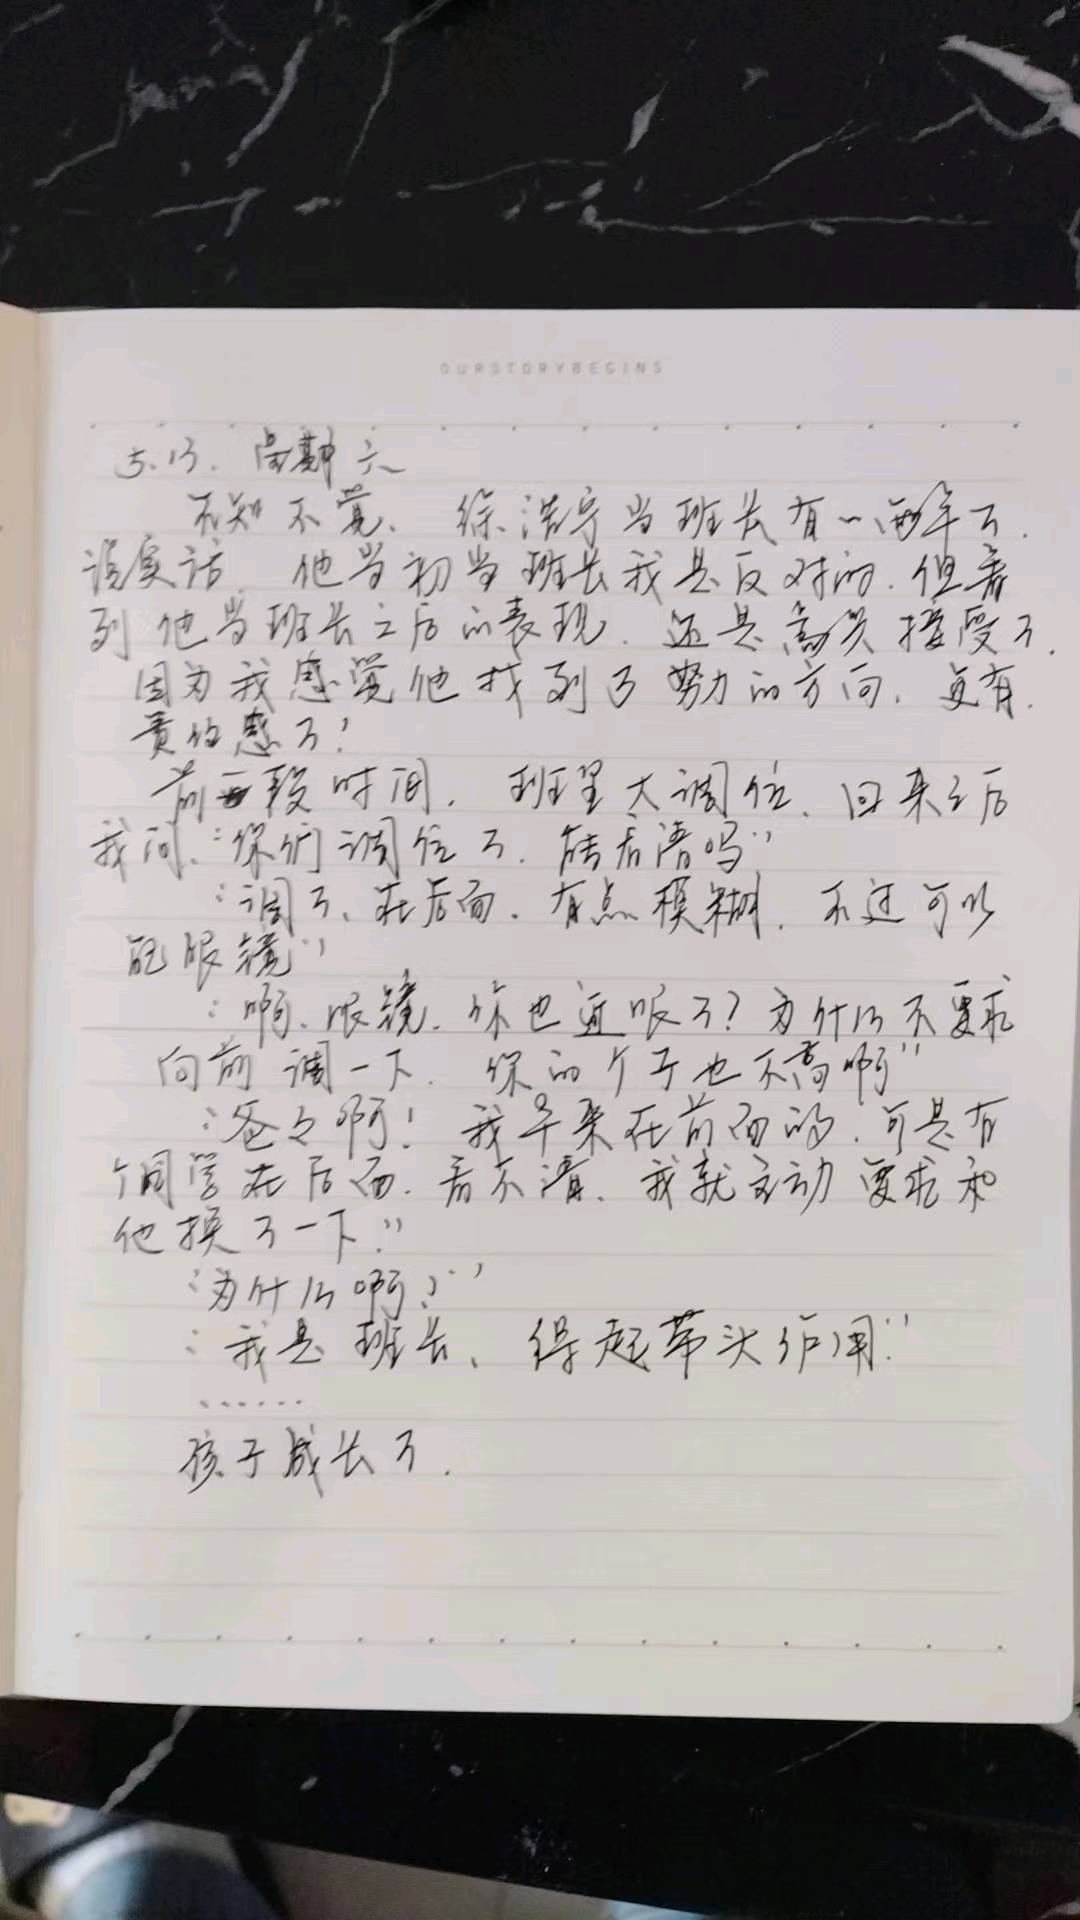 OURSTORYBEGINS
5.13. 周期六
不知不觉、 徐浩宁当班长有一两年了.
说实话 他当初当班长我是反对的. 但看
到他当班长之后的表现. 还是高兴接受了.
因为我感觉他找到了努力的方向. 更有
责任感了!
前一段时间. 班里大调位. 回来之后
我问、:“你们调位了. 能看清吗”
:“调了、在后面. 有点模糊. 不过可以
配眼镜”
:“啊、眼镜. 你也近眼了? 为什么不要求
向前调一下. 你的个子也不高啊”
:“爸々啊! 我早来在前面的. 可是有
个同学在后面. 看不清、我就主动要求和
他换了一下.”
:“为什么啊?”
:“我是班长、得起带头作用.”
......
孩子成长了.